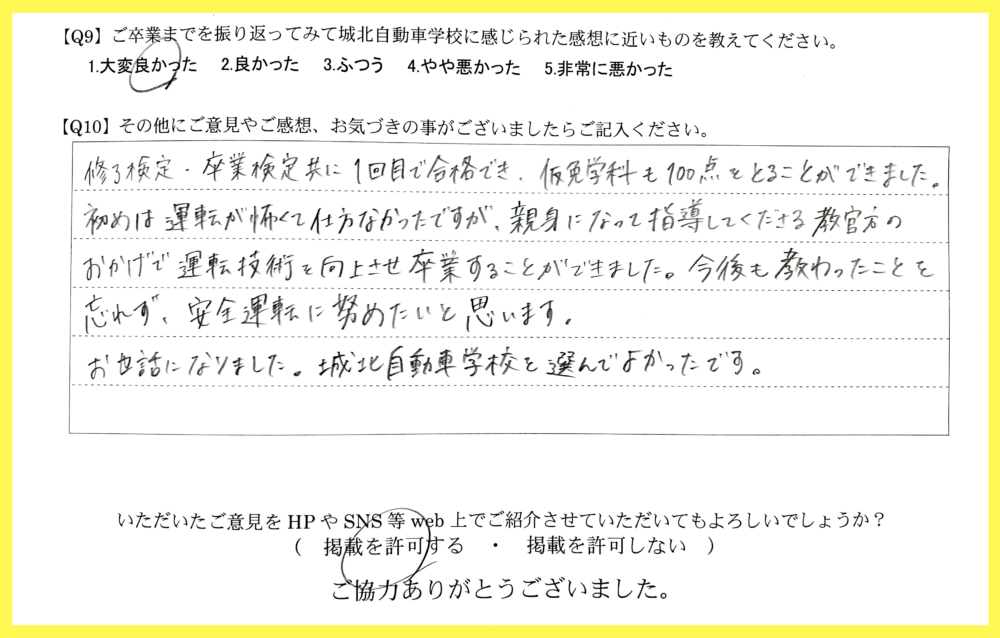 【Q9】ご卒業までを振り返ってみて城北自動車学校に感じられた感想に近いものを教えてください。
1.大変良かった　2.良かった　3.ふつう　4.やや悪かった　5.非常に悪かった
【Q10】その他にご意見やご感想、お気づきの事がございましたらご記入ください。
修了検定・卒業検定共に1回目で合格でき、仮免学科も100点をとることができました。
初めは運転が怖くて仕方なかったですが、親身になって指導してくださる教官方の
おかげで運転技術を向上させ卒業することができました。今後も教わったことを
忘れず、安全運転に努めたいと思います。
お世話になりました。城北自動車学校を選んでよかったです。
いただいたご意見をHPやSNS等web上でご紹介させていただいてもよろしいでしょうか？
(　掲載を許可する　・　掲載を許可しない　)
ご協力ありがとうございました。